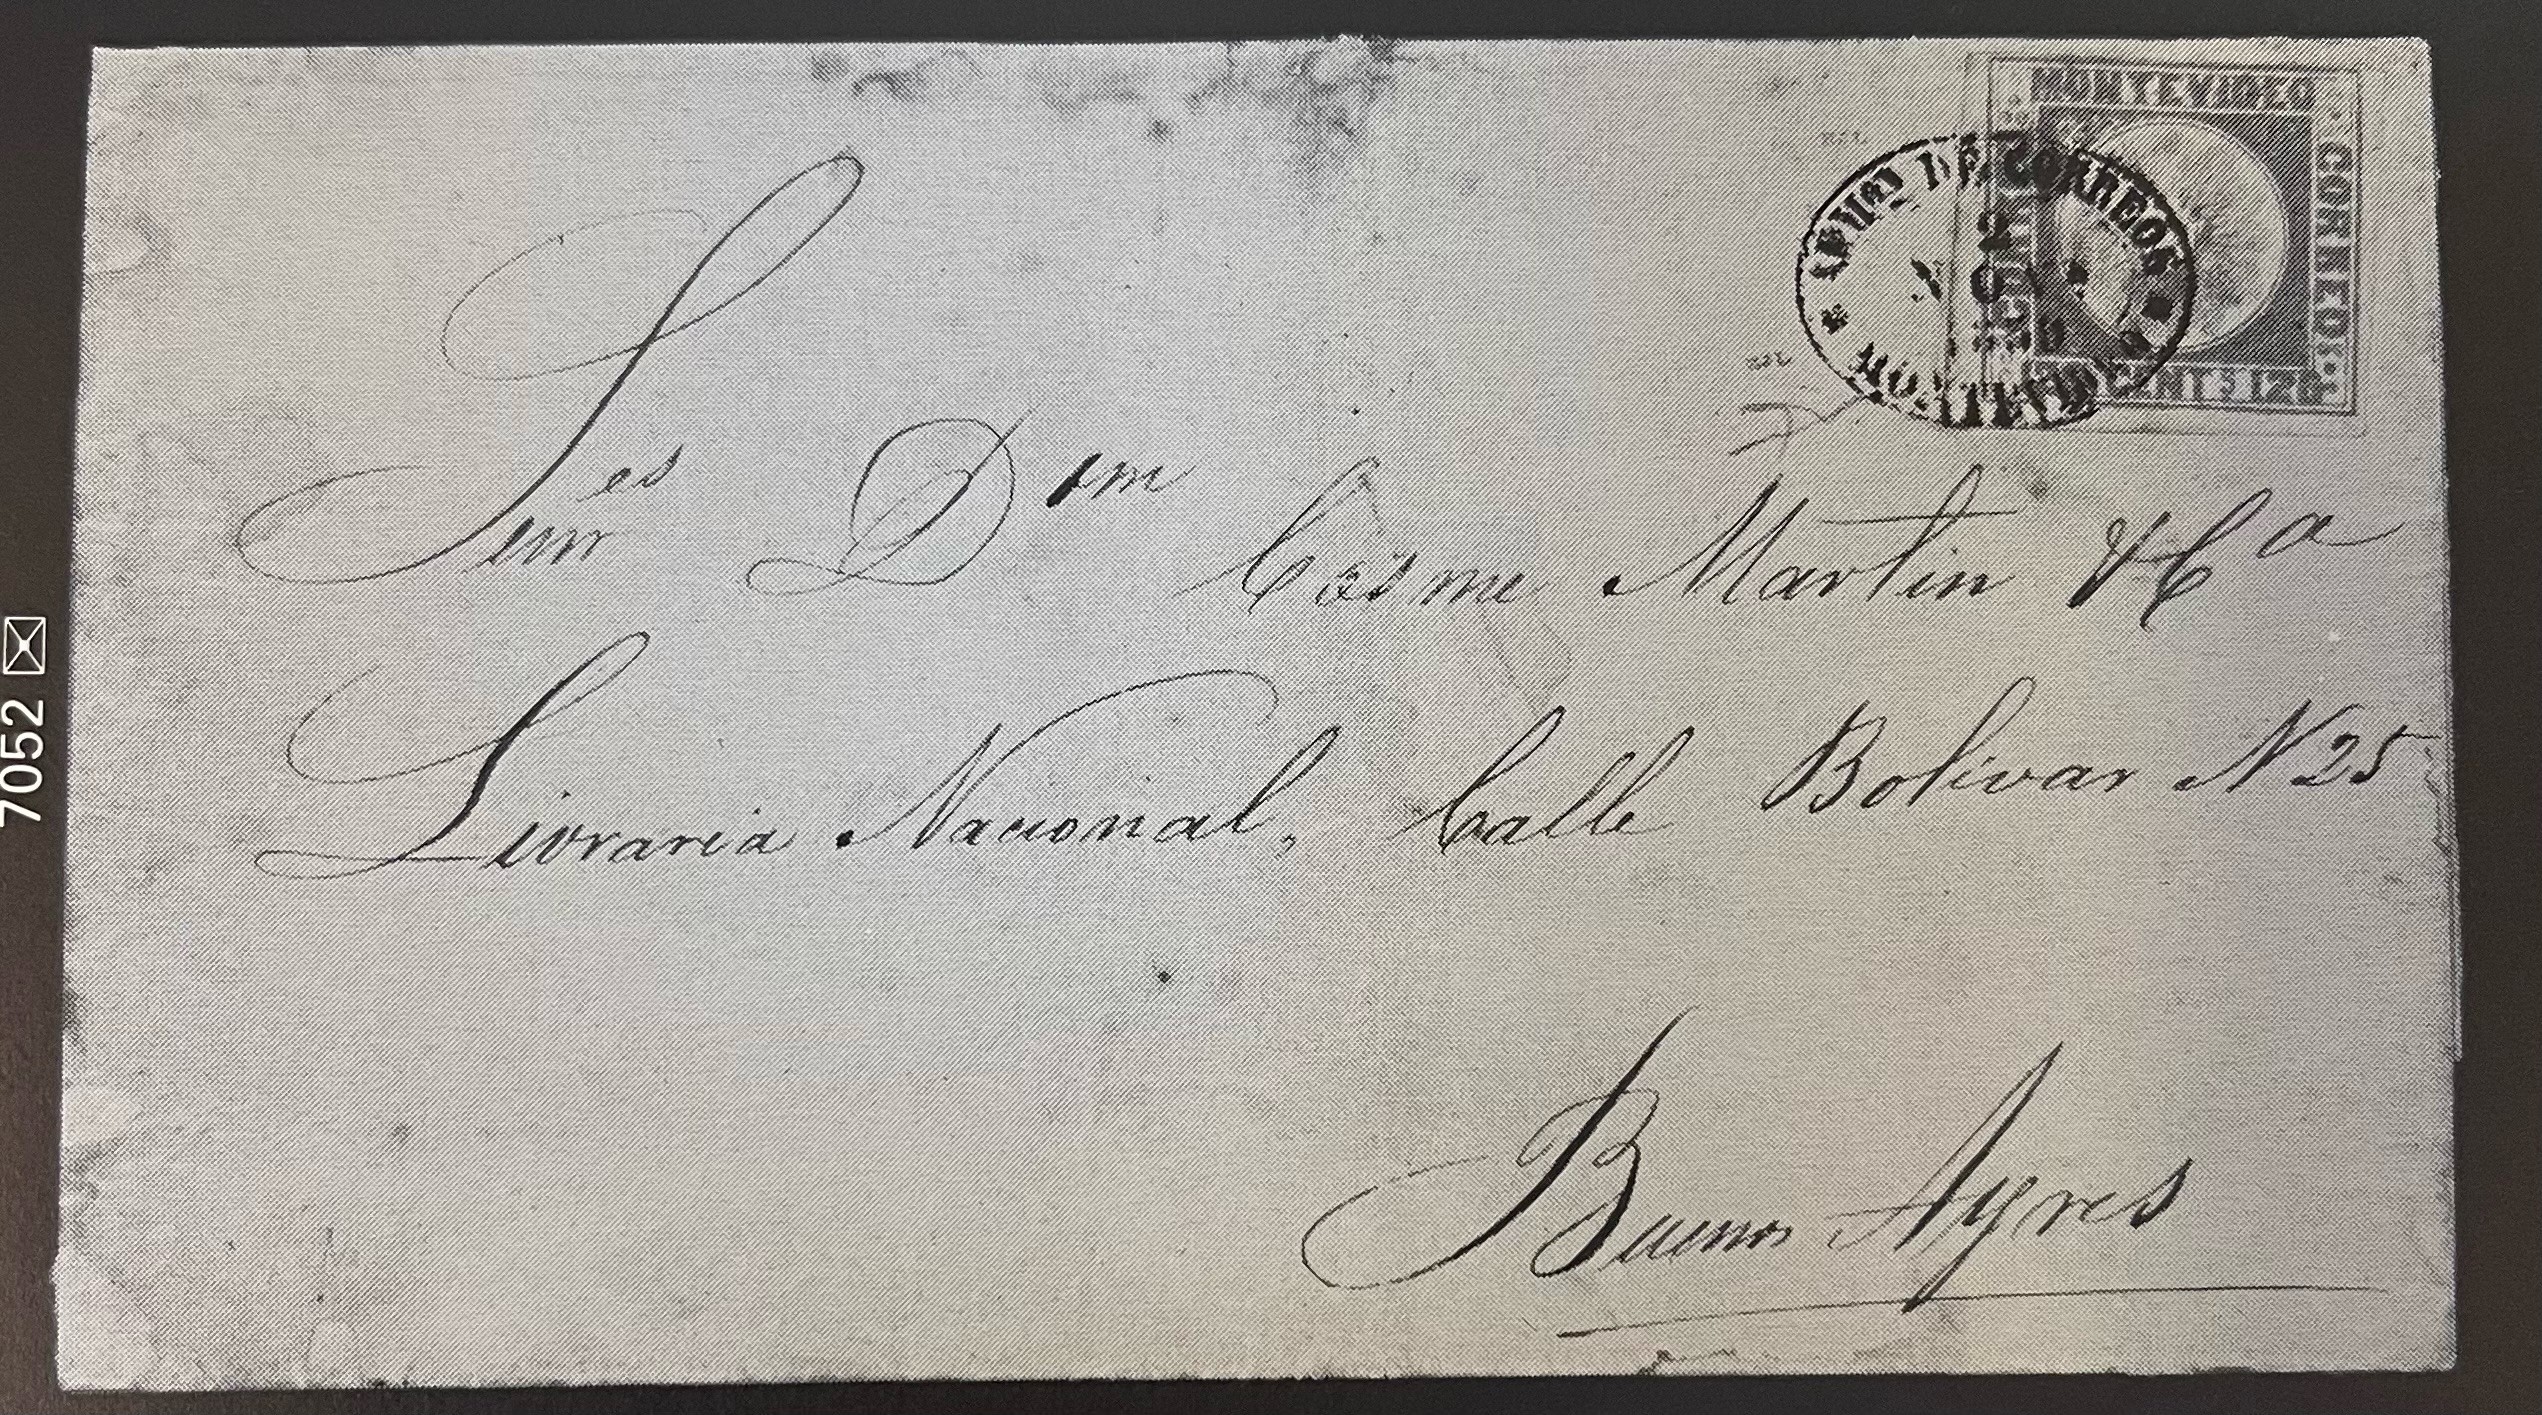 MONTEVIDEO
CORREO
CENTES
ADMON DE CORREOS
MONTEVIDEO
Senres Dom Cosme Martin & Ca
Livraria Nacional, Calle Bolivar N 25
Buenos Ayres
7052